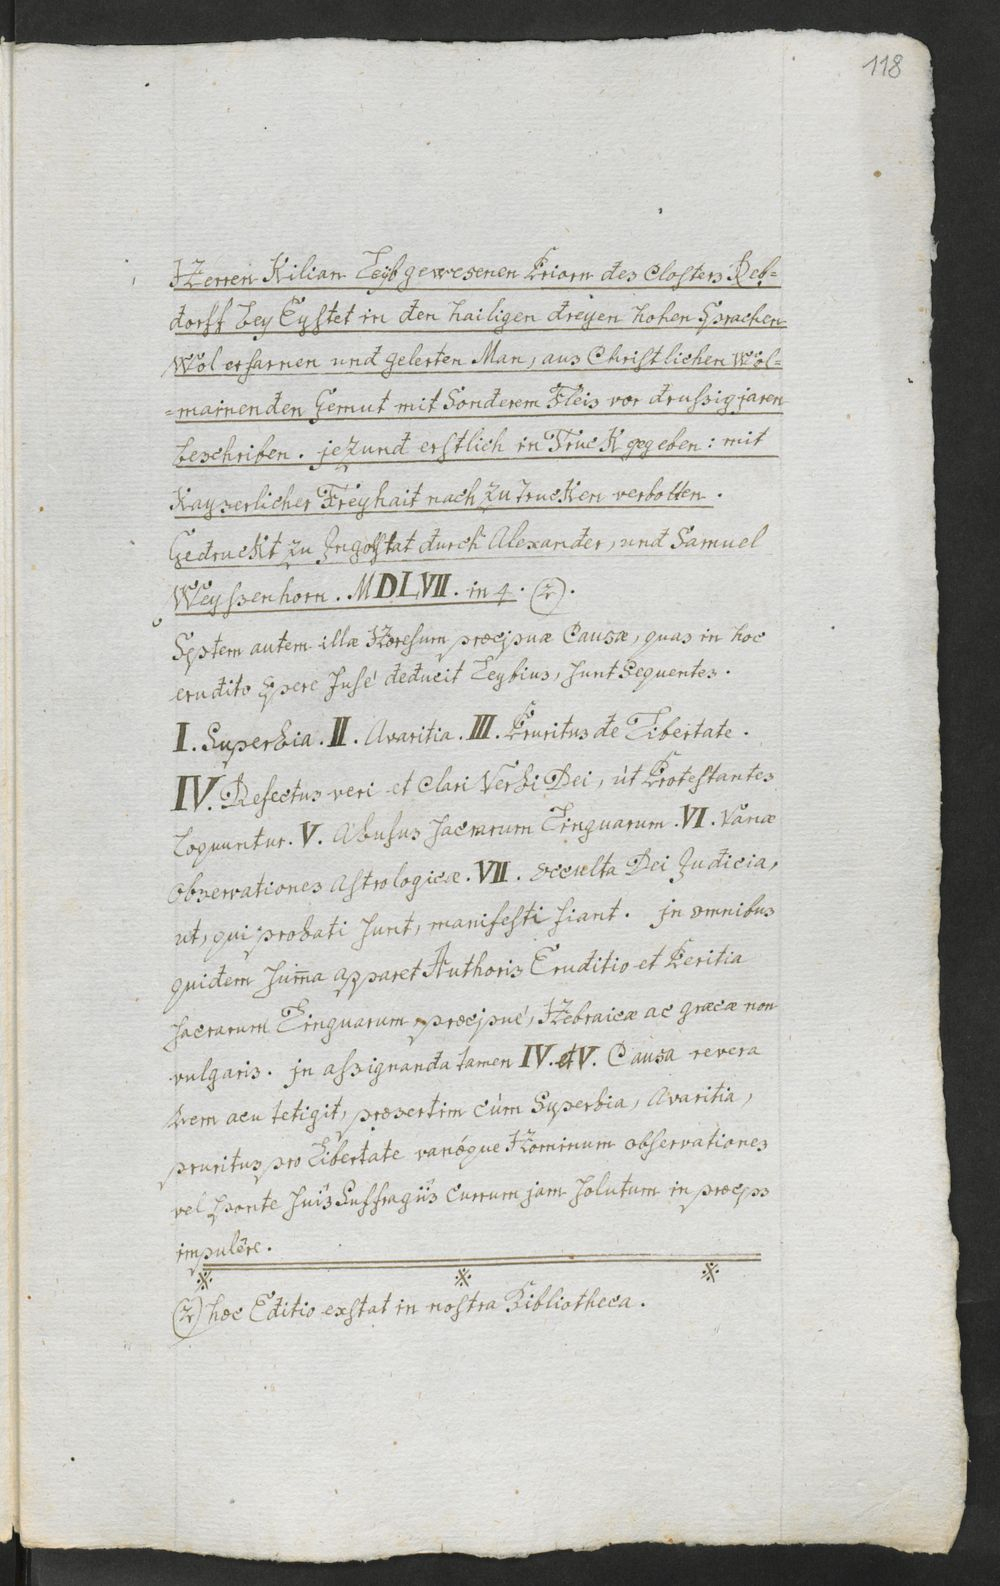 118
Herren Kilian Leyb gewesenen Priorn des Closters Reb=
dorff bey Eystet in den hailigen dreyen hohen Sprachen
Wol erfarnen und gelerten Man, aus Christlichen Wol=
=mainenden Gemut mit Sonderem Fleis vor drussig jaren
beschriben. jezund erstlich in Truck gegeben: mit
Kayserlicher Freyhait nach zu Trucken verbotten.
Gedruckt zu Jngolstat durch Alexander, und Samuel
Weyssenhorn. MDLVII. in 4. (2).
Septem autem illæ Hæresum præcipuæ Causæ, quas in hoc
erudito opere fusé deducit Leybius, sunt Sequentes.
I. Superbia. II. Avaritia. III. Pruritus de Libertate.
IV. Defectus veri et Clari Verbi Dei, ùt Protestantes
loquuntur. V. Abusus sacrarum Linguarum. VI. Vanæ
Observationes Astrologicæ. VII. Occulta Dei Judicia,
ut, qui probati sunt, manifesti fiant. jn omnibus
quidem sum̄a apparet Authoris Eruditio et Peritia
sacrarum Linguarum, præcipué, Hebraicæ ac græcæ non
vulgaris. jn assignanda tamen IV. et V. Causa revera
rem acu tetigit, præsertim cùm Superbia, Avaritia,
pruritus pro Libertate vanǽque Hominum observationes
vel sponte suis Suffragijs Currum jam solutum in præceps
impulêre.
(2) hæc Editio exstat in nostra Bibliotheca.